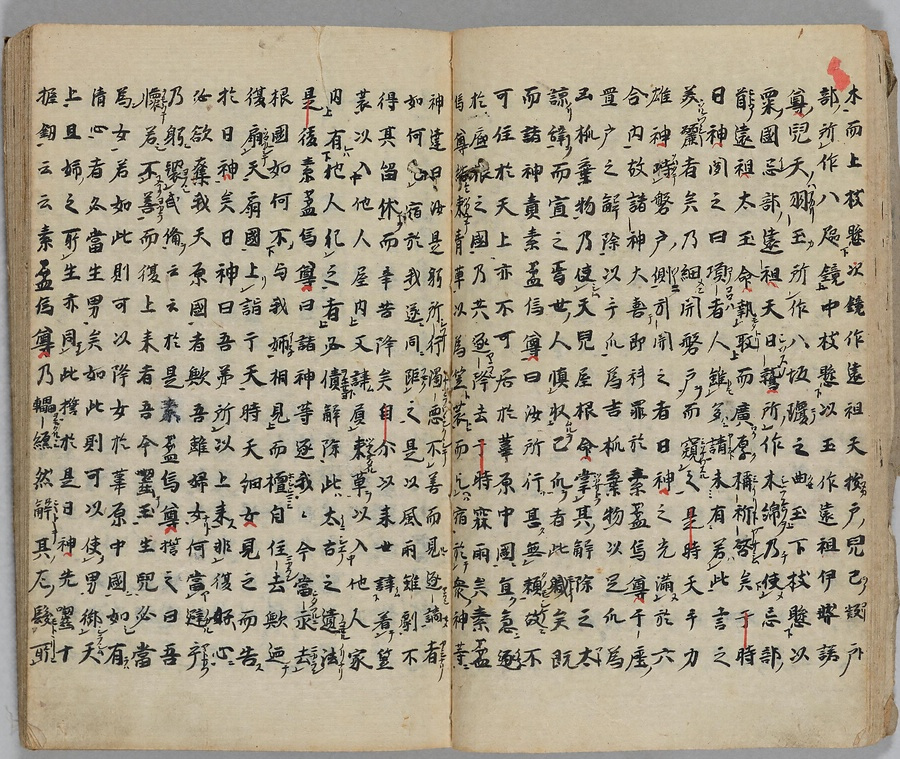 木而上枝懸次鏡作遠祖天拔戶兒己凝戶
部所作八咫鏡中枝懸以玉作遠祖伊弉諾
尊兒天羽玉所作八坂瓊之曲玉下枝懸以
粟國忌部遠祖天日鷲所作木綿乃使忌部
首遠祖太玉命執取而廣厚稱祈啓矣于時
日神聞之曰頃者人雖多請未有若此言之
美麗者矣乃細開磐戶而窺之是時天手力
雄神侍磐戶側引開之者日神之光滿於六
合內故諸神大喜即科罪於素盞烏尊千座
置戶之解除以手爪為吉爪棄物以足爪為
凶爪棄物乃使天兒屋根命掌其解除之太
諄辭而宣之焉世人慎收己爪者此緣矣既
而諸神責素盞烏尊曰汝所行甚無賴故不
可住於天上亦不可居於葦原中國宜急逐
於底根之國乃共逐降去于時霖雨矣素盞
烏尊結束青草以為笠蓑而乞宿於衆神等
神達曰汝是躬所行濁惡不善而見逐謫者
如何乞宿於我遂同距之是以風雨雖劇不
得其留休而辛苦降矣自尒以来世諱着笠
蓑以入他人屋内又諱負束草以入他人家
内有犯人犯之者必債解除此太古之遺法
是後素盞烏尊曰諸神等逐我今當永去
根國如何不与我姉相見而檀自住去歟廼
復扇天扇國上詣于天時天細女見之而告
於日神矣日神曰吾弟所以上来非復好心
必欲奪我天原國者歟吾雖婦女何當避乎
乃躬裝武備云云於是素盞烏尊誓之曰吾
懷若不善而復上来者吾今囓玉生兒必當
為女若如此則可以降女於葦原中國如有
清心者必當生男矣如此則可以使男御天
上且姉之所生亦同此誓於是日神先囓十
握劔云云素盞烏尊乃轠轤然解其左髻所